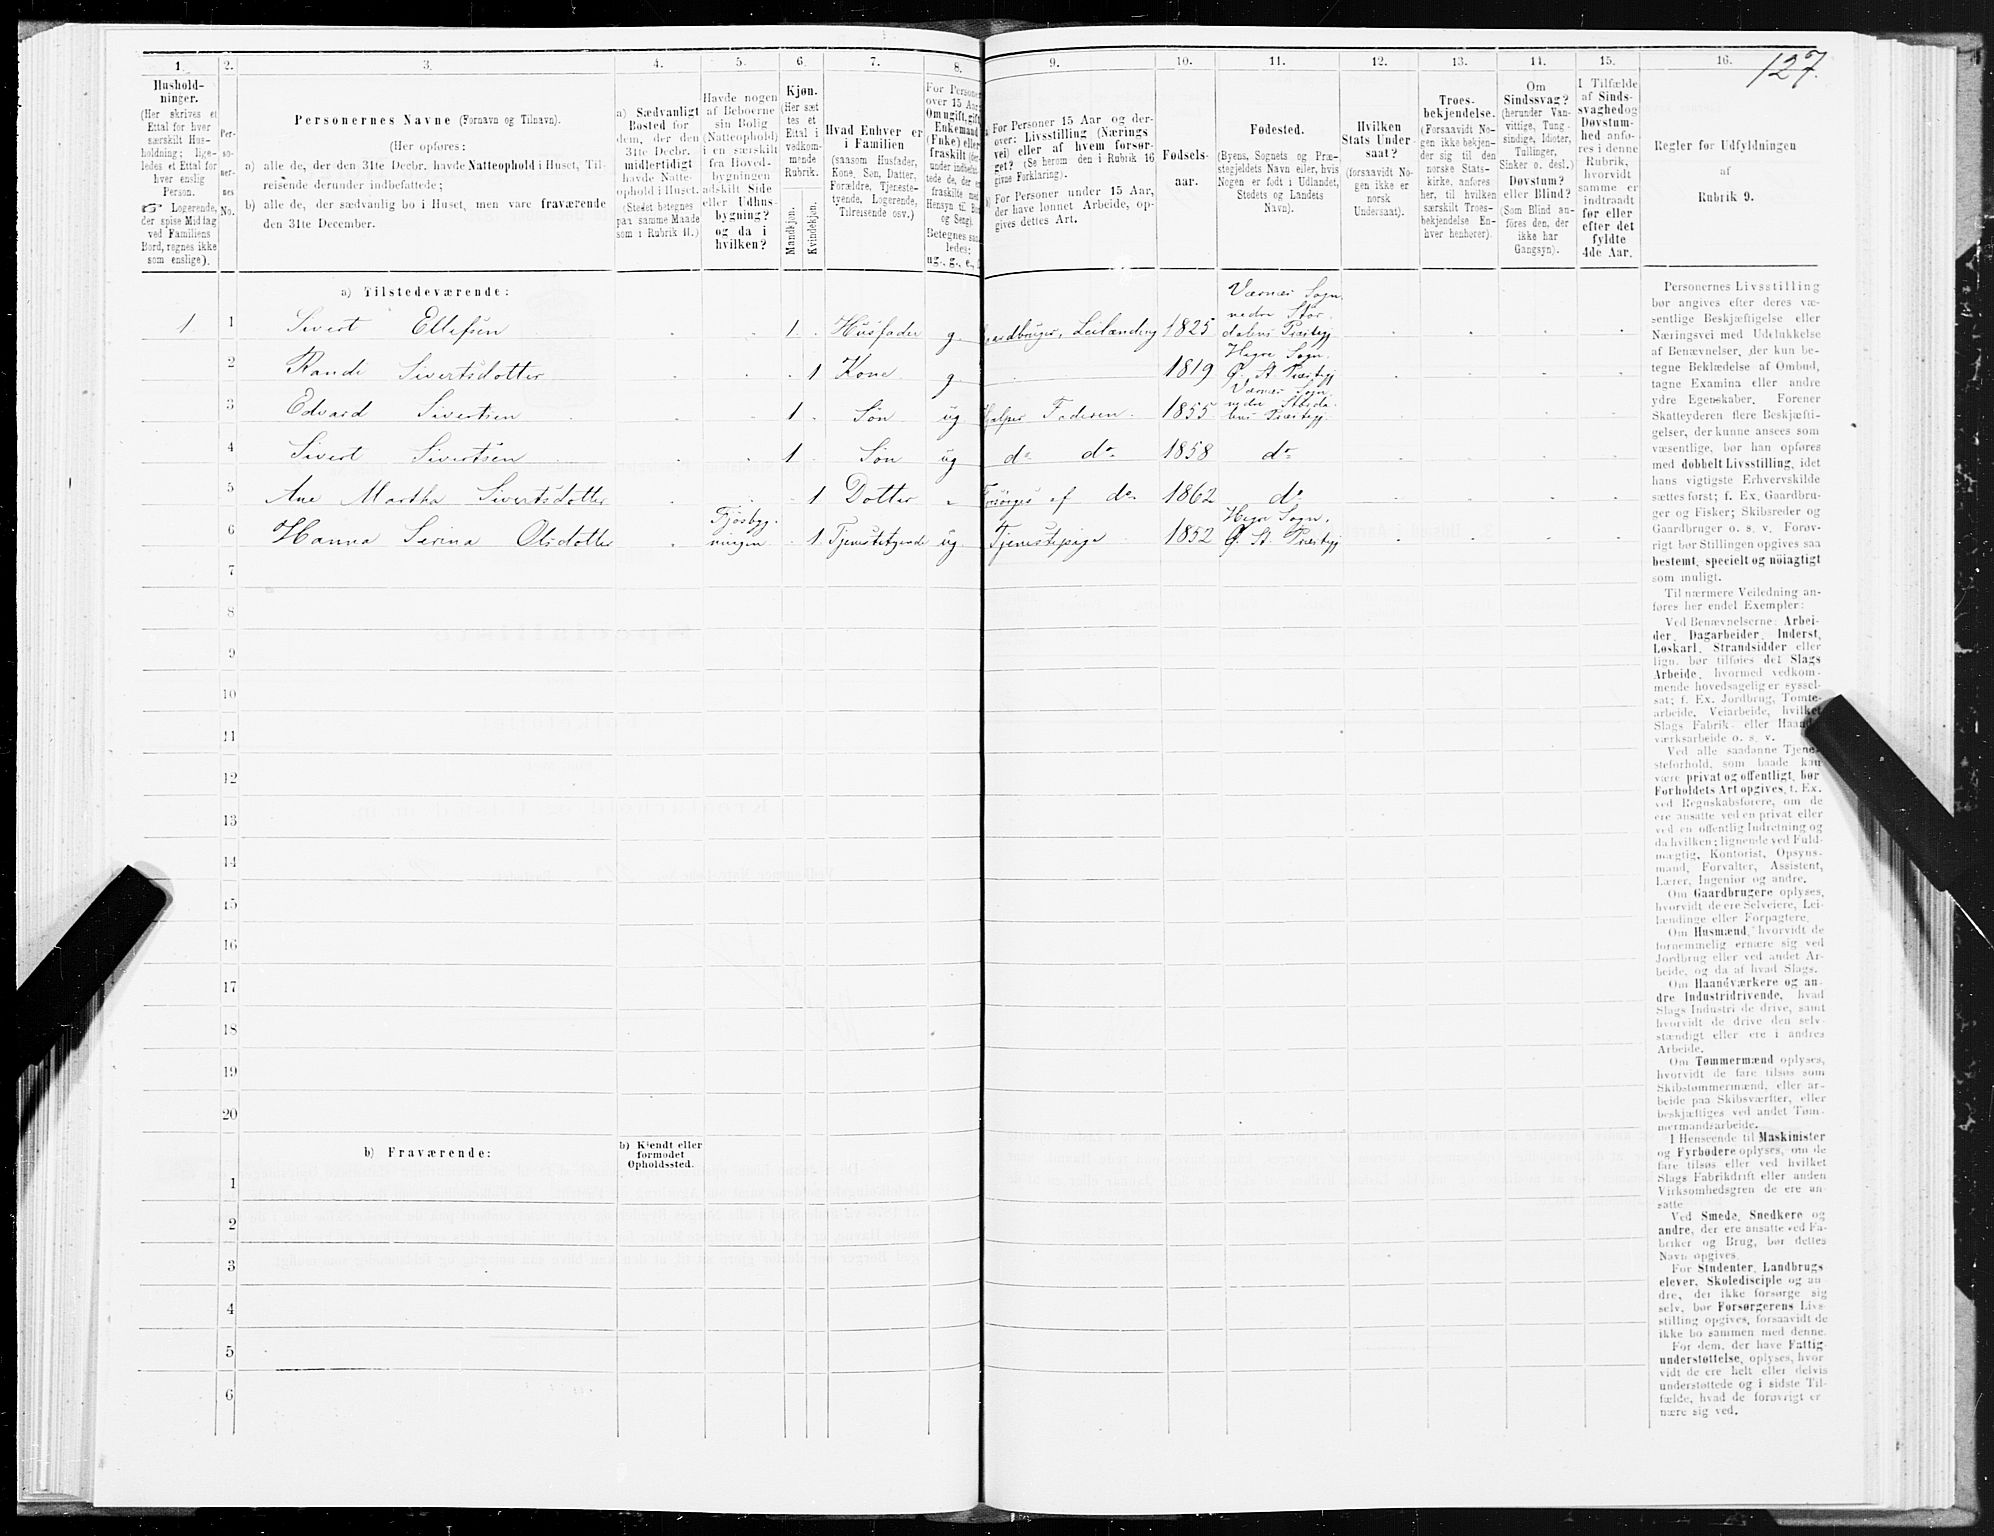 127.
1. 2. 3. 4. 5. 6. 7. 8. 9. 10. 11. 12. 13. 14. 15. 16.
Hushold-
ninger.
(Her skrives et
Ettal for hver
særskilt Hus-
holdning; lige-
ledes et Ettal for
hver enslig
Person.
☞ Logerende,
der spise Middag
ved Familiens
Bord, regnes ikke
som enslige).
Per-
so-
ner-
nes
No.
Personernes Navne (Fornavn og Tilnavn).
(Her opføres:
a) alle de, der den 31te Decbr. havde Natteophold i Huset, Til-
reisende derunder indbefattede;
b) alle de, der sædvanlig bo i Huset, men vare fraværende
den 31te December.
a) Sædvanligt
Bosted for
dem, der den
31te Decbr.
midlertidigt
havde Natte-
ophold i Huset.
(Stedet betegnes
paa samme Maade
som i Rubrik 11.)
Havde nogen
af Beboerne
sin Bolig
(Natteophold)
i en særskilt
fra Hoved-
bygningen
adskilt Side
eller Udhus-
bygning?
og da i
hvilken?
Kjøn.
(Her sæt
tes et
Ettal i
vedkom-
mende
Rubrik.
Mandkjøn.
Kvindekjøn.
Hvad Enhver er
i Familien
(saasom Husfader,
Kone, Søn, Datter,
Forældre, Tjeneste-
tyende, Logerende,
Tilreisende osv.)
For Personer
over 15 Aar:
Om ugift, gift,
Enkemand
(Enke) eller
fraskilt
Betegnes saa-
ledes:
ug., g., e.,
For Personer 15 Aar og der-
over: Livsstilling (Nærings
vei) eller af hvem forsør-
get? (Se herom den i Rubrik 16
givne Forklaring).
b) For Personer under 15 Aar,
der have lønnet Arbeide, op-
gives dettes Art.
Fødsels-
aar.
Fødested.
(Byens, Sognets og Præ-
stegjeldets Navn eller, hvis
Nogen er født i Udlandet,
Stedets og Landets
Navn).
Hvilken
Stats Under-
saat?
(forsaavidt No-
gen ikke er
norsk
Undersaat).
Troes-
bekjendelse.
(Forsaavidt No-
gen ikke bekjen-
der sig til den
norske Stats-
kirke, anføres
her, til hvilken
særskilt Troes-
bekjendelse En-
hver henhører).
Om
Sindssvag?
(herunder Van-
vittige, Tung-
sindige, Idioter,
Tullinger,
Sinker o. desl.)
Døvstum?
eller Blind?
(Som Blind an-
føres den, der
ikke har
Gangsyn).
I Tilfælde
af Sinds-
svaghed og
Døvstum-
hed anfø-
res i denne
Rubrik,
hvorvidt
samme er
indtraadt
før eller
efter det
fyldte
4de Aar.
Regler for Udfyldningen
af
Rubrik 9.
a) Tilstedeværende:
1 1 Sivert Ellefsen 1 Husfader g. Gaardbruger, Leilænding 1825 Værnæs Sogn nedre Stør-
dalens Præstegj
2 Rande Sivertsdotter 1 Kone g. 1819 Hegre Sogn.
Ø. St. Præstegj
3 Edvard Sivertsen 1 Søn ug Hjelper Faderen. 1855 Værnæs Sogn
nedre Størda-
lens Præstegj.
4 Sivert Sivertsen 1 Søn ug do do 1858 do
5 Ane Martha Sivertsdotter 1 Dotter Forsørges af do 1862 do
6 Hanna Sarina Olsdotter Fjøsbyg-
ningen 1 Tjenstetyende ug Tjenstepige 1852 Hegre Sogn.
Ø. St. Præstegj
7
8
9
10
11
12
13
14
15
16
17
18
19
20
b) Fraværende:
b) Kjendt eller
formodet
Opholdssted.
1
2
3
4
5
6
Personernes Livsstilling
bør angives efter deres væ-
sentlige Beskjæftigelse eller
Næringsvei med Udelukkelse
af Benævnelser, der kun be-
tegne Beklædelse af Ombud,
tagne Examina eller andre
ydre Egenskaber. Forener
Skatteyderen flere Beskjæfti-
gelser, der kunne ansees som
væsentlige, bør han opføres
med dobbelt Livsstilling, idet
hans vigtigste Erhvervskilde
sættes først; f. Ex. Gaardbru-
ger og Fisker; Skibsreder og
Gaardbruger o. s. v. Forøv-
rigt bør Stillingen opgives saa
bestemt, specielt og nöiagtigt
som muligt.
Til nærmere Veiledning an-
føres her endel Exempler:
Ved Benævnelserne: Arbei-
der, Dagarbeider, Inderst,
Løskarl, Strandsidder eller
lign. bør tilføies det Slags
Arbeide, hvormed vedkom-
mende hovedsagelig er syssel-
sat; f. Ex. Jordbrug, Tomte-
arbeide, Veiarbeide, hvilket
Slags Fabrik- eller Haand-
værksarbeide o. s. v.
Ved alle saadanne Tjene-
steforhold, som baade kan
være privat og offentligt, bør
Forholdets Art opgives, f. Ex.
ved Regnskabsførere, om de
ere ansatte ved en privat eller
ved en offentlig Indretning og
da hvilken; lignende ved Fuld-
mægtig, Kontorist, Opsyns-
mand, Forvalter, Assistent,
Lærer, Ingeniør og andre.
Om Gaardbrugere oplyses,
hvorvidt de ere Selveiere, Lei-
lændinge eller Forpagtere.
Om Husmænd, hvorvidt de
fornemmelig ernære sig ved
Jordbrug eller ved andet Ar-
beide, og da af hvad Slags.
Om Haandværkere og an-
dre Industridrivende, hvad
Slags Industri de drive, samt
hvorvidt de drive den selv-
stændigt eller ere i andres
Arbeide.
Om Tømmermænd oplyses,
hvorvidt de fare tilsøs som
Skibstømmermænd, eller ar-
beide paa Skibsværfter, eller
beskjæftiges ved andet Tøm-
mermandsarbeide.
I Henseende til Maskinister
og Fyrbødere oplyses, om de
fare tilsøs eller ved hvilket
Slags Fabrikdrift eller anden
Virksomhedsgren de ere an-
satte
Ved Smede, Snedkere og
andre, der ere ansatte ved Fa-
briker og Brug, bør dettes
Navn opgives.
For Studenter, Landbrugs
elever, Skoledisciple og an-
dre, der ikke forsørge sig
selv, bør Forsørgerens Livs-
stilling opgives, forsaavidt de
ikke bo sammen med denne.
For dem, der have Fattig-
understøttelse, oplyses, hvor
vidt de ere helt eller delvis
understøttede og i sidste Til-
fælde, hvad de forøvrigt er
nære sig ved.